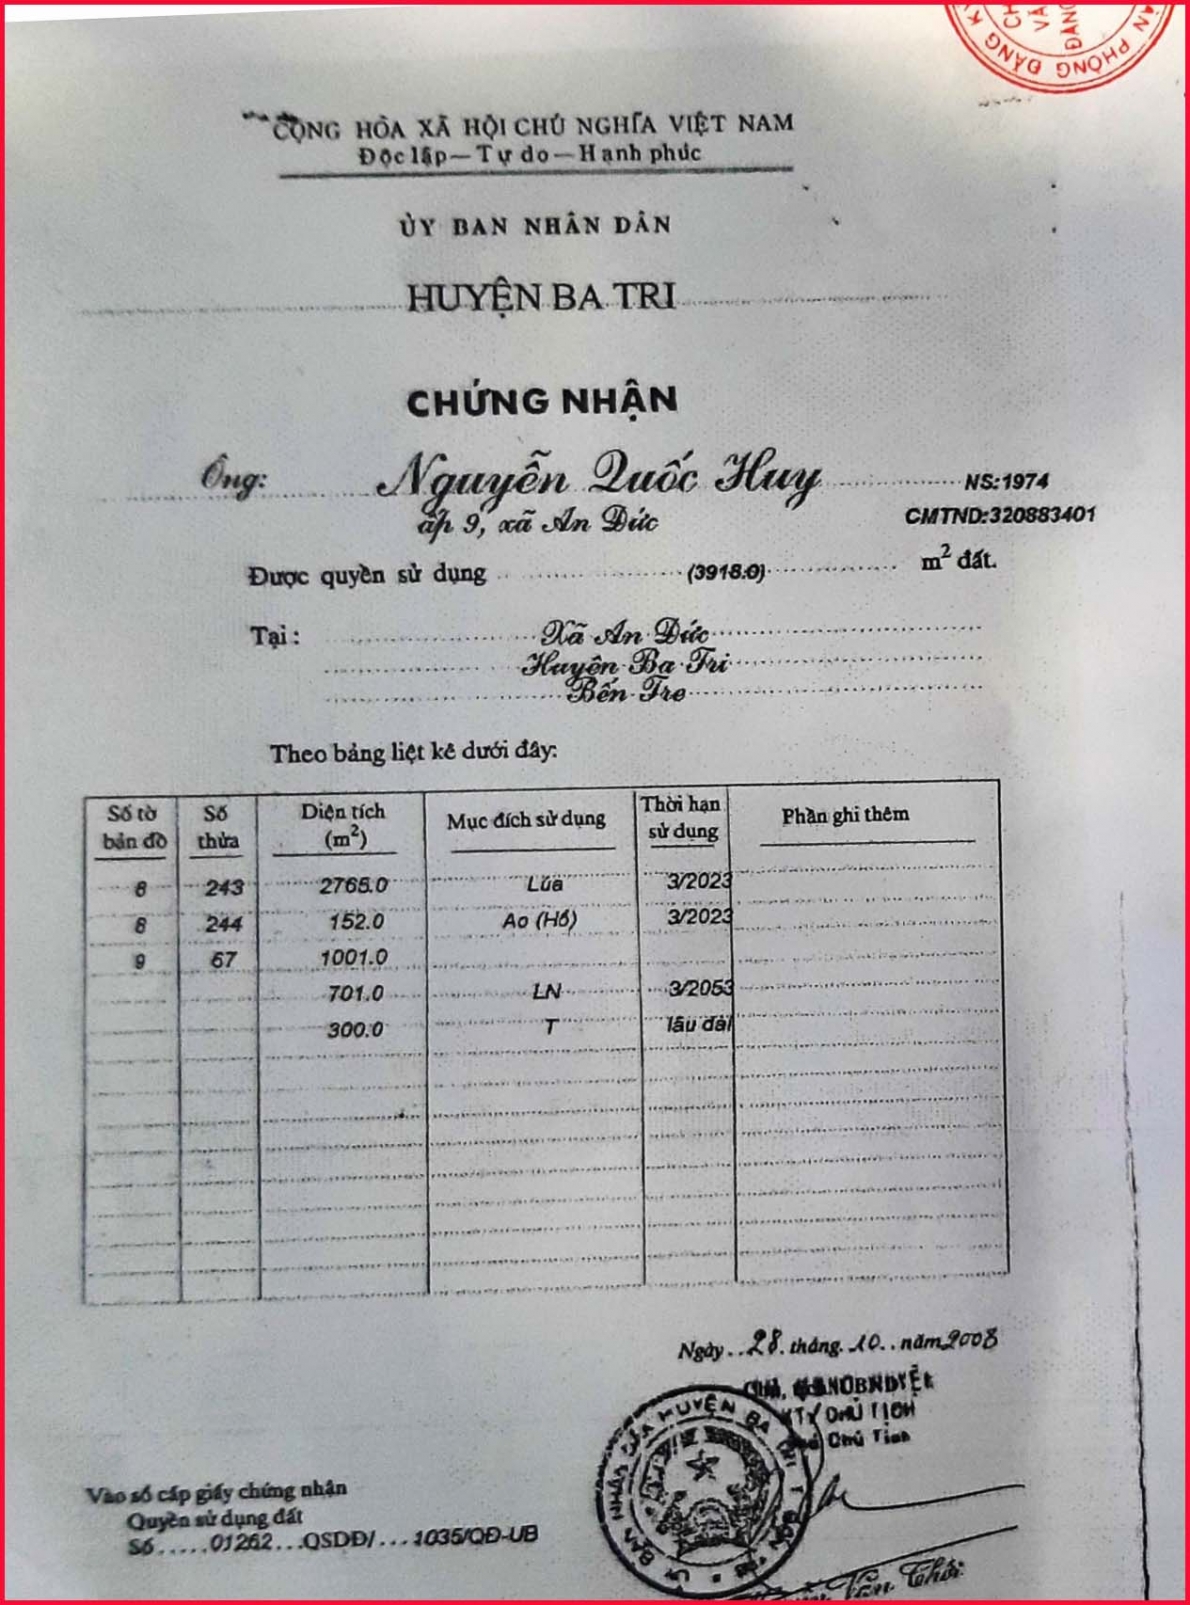 CH
VĂ
ĐĂNG
VĂN PHÒNG ĐĂNG K
CỘNG HÒA XÃ HỘI CHỦ NGHĨA VIỆT NAM
Độc lập — Tự do — Hạnh phúc
ỦY BAN NHÂN DÂN
HUYỆN BA TRI
CHỨNG NHẬN
Ông: Nguyễn Quốc Huy NS:1974
ấp 9, xã An Đức CMTND:320883401
Được quyền sử dụng (3918.0) m² đất.
Tại : Xã An Đức
Huyện Ba Tri
Bến Tre
Theo bảng liệt kê dưới đây:
Số tờ bản đồ Số thửa Diện tích (m²) Mục đích sử dụng Thời hạn sử dụng Phần ghi thêm
8 243 2765.0 Lúa 3/2023
8 244 152.0 Ao (Hồ) 3/2023
9 67 1001.0
701.0 LN 3/2053
300.0 T lâu dài
Ngày..28.tháng.10..năm 2008
KT/ CHỦ TỊCH
Phó Chủ Tịch
ỦY BAN NHÂN DÂN HUYỆN BA TRI
Vào sổ cấp giấy chứng nhận
Quyền sử dụng đất
Số.....01262...QSDĐ/...1035/QĐ-UB
Văn Thới